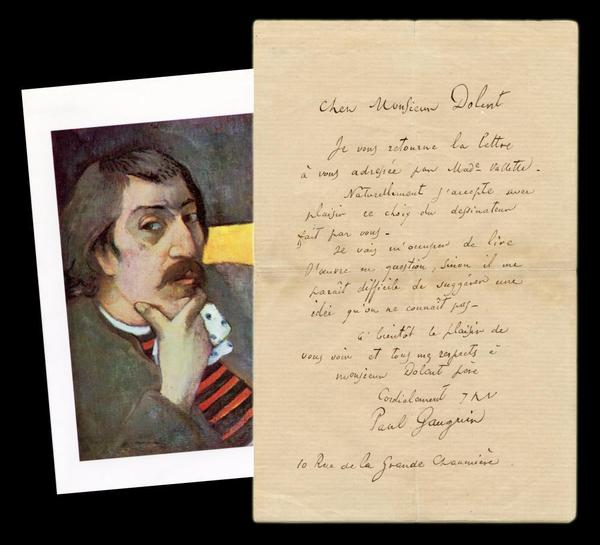 Cher Monsieur Dolent
Je vous retourne la lettre
à vous adressée par Made Vallette.
Naturellement j'accepte avec
plaisir ce choix du dessinateur
fait par vous.
Je vais m'occuper de lire
l'œuvre en question, sinon il me
paraît difficile de suggérer une
idée qu'on ne connaît pas.
A bientôt le plaisir de
vous voir et tous mes respects à
monsieur Dolent père
Cordialement
Paul Gauguin
10 Rue de la Grande Chaumière